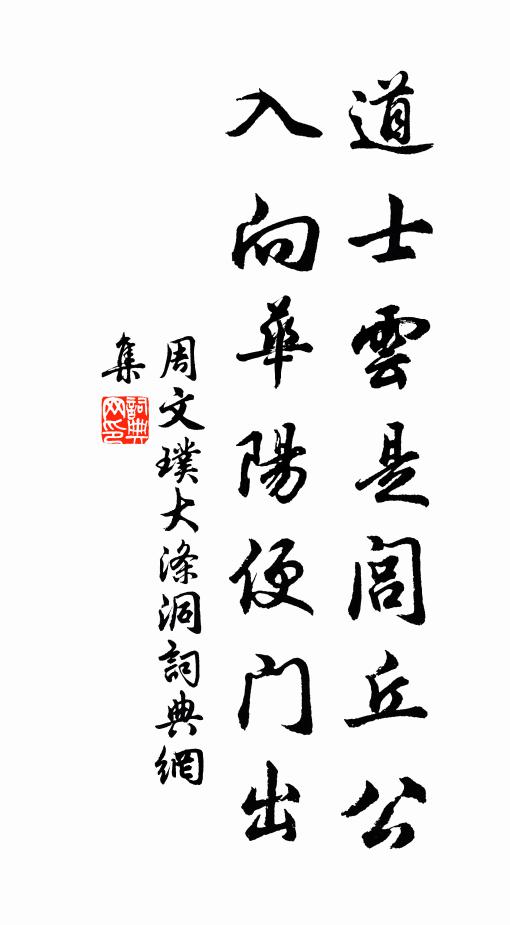 道士雲是閭丘公
入向華陽便門出
周文璞大滌洞詞典網
集
詞典網印